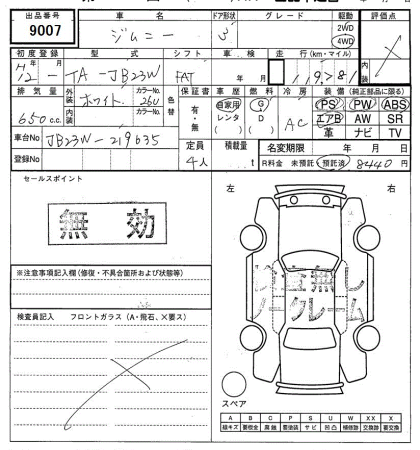 出品番号 車名 ドア形状 グレード 駆動 評価点
9007 ジムニー 3 2WD 4WD
初度登録 型式 シフト 車検 走行(km・マイル)
H12年 月 TA-JB23W FAT 年 月 119,781
排気量 外装 カラーNo. 色替 保証書 車歴 燃料 冷房 装備(純正部品に限る)
ホワイト 26U 有・無 自家用 G AC PS PW ABS
650c.c. 内装 カラーNo. レンタ D エアB AW SR
革 ナビ TV
車台No JB23W-219635 定員 積載量 名変期限 年 月 日
登録No 4人 t R料金 未預託 預託済 8440円
セールスポイント
無効
左 右
※注意事項記入欄(修復・不具合箇所および状態等)
検査無し
ノークレーム
検査員記入 フロントガラス(A・飛石、×要ス)
スペア
A B C P S U W X XX
線キズ 要板金 腐蝕 要塗装 サビ 凹凸 補修跡 交換跡 要交換